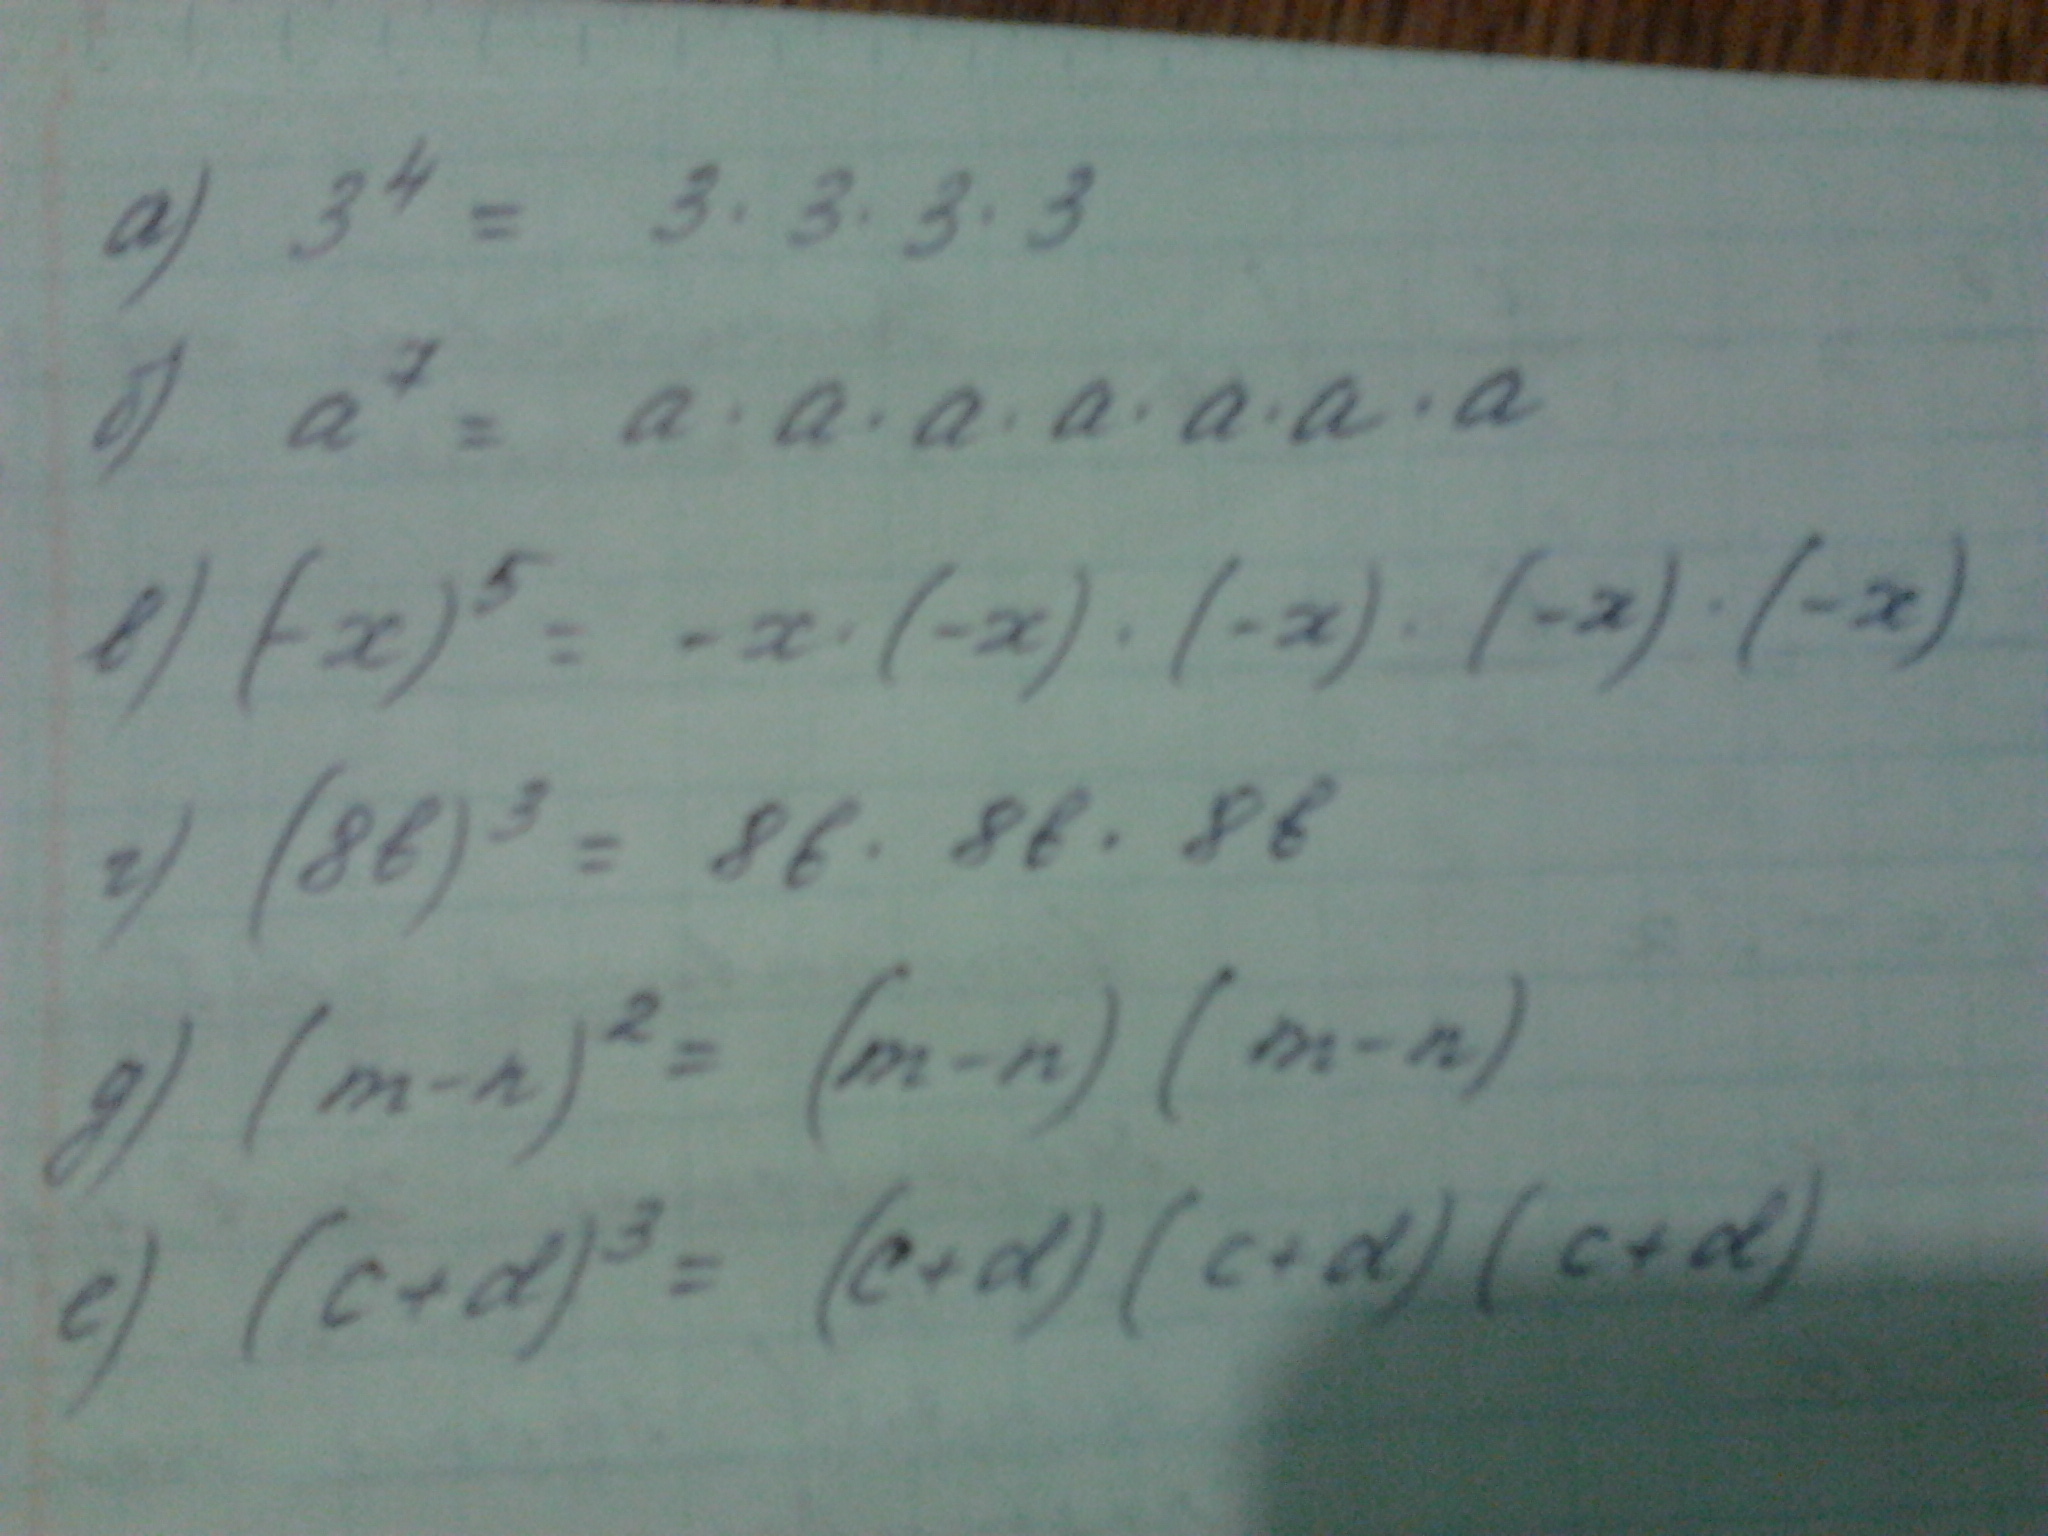 а) 3⁴ = 3 · 3 · 3 · 3
б) a⁷ = a · a · a · a · a · a · a
в) (-x)⁵ = -x · (-x) · (-x) · (-x) · (-x)
г) (8b)³ = 8b · 8b · 8b
д) (m-n)² = (m-n) (m-n)
е) (c+d)³ = (c+d) (c+d) (c+d)